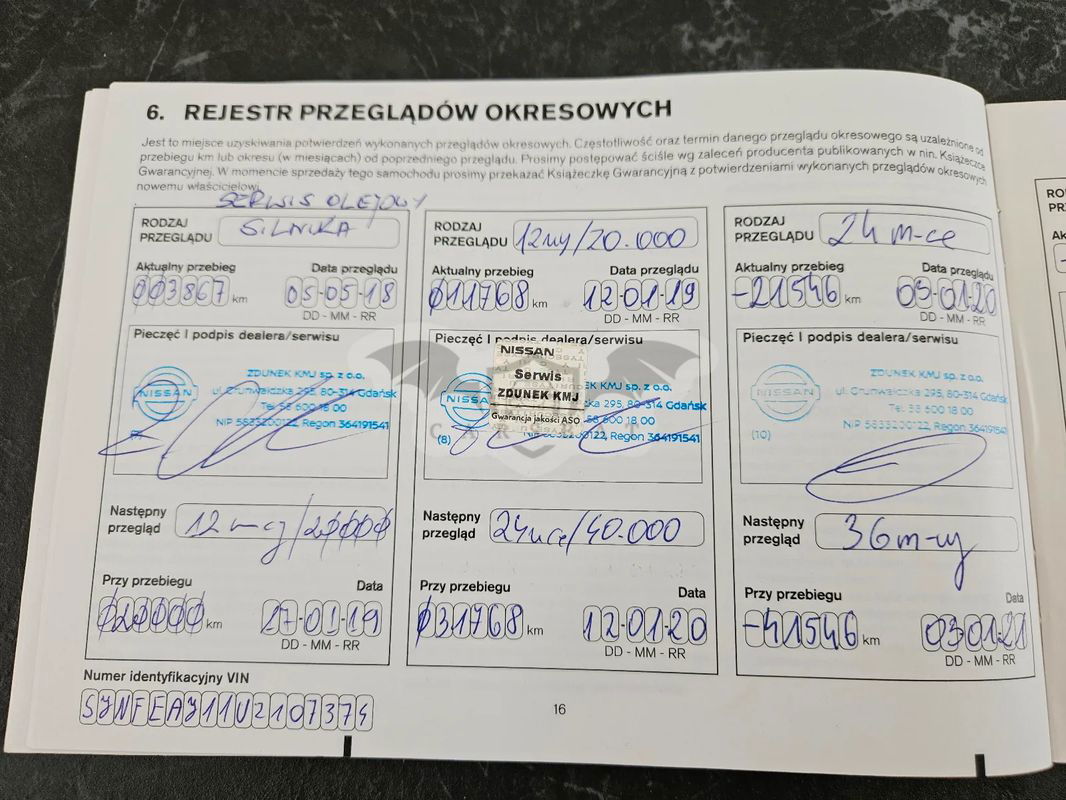 6. REJESTR PRZEGLĄDÓW OKRESOWYCH
Jest to miejsce uzyskiwania potwierdzeń wykonanych przeglądów okresowych. Częstotliwość oraz termin danego przeglądu okresowego są uzależnione od
przebiegu km lub okresu (w miesiącach) od poprzedniego przeglądu. Prosimy postępować ściśle wg zaleceń producenta publikowanych w nin. Książeczce
Gwarancyjnej. W momencie sprzedaży tego samochodu prosimy przekazać Książeczkę Gwarancyjną z potwierdzeniami wykonanych przeglądów okresowych
nowemu właścicielowi.
SERWIS OLEJOWY
RODZAJ PRZEGLĄDU SILNIKA
Aktualny przebieg Data przeglądu
003867 km 05-05-18
DD - MM - RR
Pieczęć I podpis dealera/serwisu
NISSAN
ZDUNEK KMJ sp. z o.o.
ul. Grunwaldzka 295, 80-314 Gdańsk
Tel. 58 600 18 00
NIP 5833200122, Regon 364191541
Następny przegląd 12 mcy/20000
Przy przebiegu Data
020000 km 17-01-19
DD - MM - RR
RODZAJ PRZEGLĄDU 12my/20.000
Aktualny przebieg Data przeglądu
011768 km 12-01-19
DD - MM - RR
Pieczęć I podpis dealera/serwisu
NISSAN
Serwis
ZDUNEK KMJ
Gwarancja jakości ASO
NISSA
EK KMJ sp. z o.o.
295, 80-314 Gdańsk
58 600 18 00
122, Regon 364191541
(8)
Następny przegląd 24mce/40.000
Przy przebiegu Data
031768 km 12-01-20
DD - MM - RR
RODZAJ PRZEGLĄDU 24 m-ce
Aktualny przebieg Data przeglądu
-21546 km 03-01-20
DD - MM - RR
Pieczęć I podpis dealera/serwisu
NISSAN
ZDUNEK KMJ sp. z o.o.
ul. Grunwaldzka 295, 80-314 Gdańsk
Tel. 58 600 18 00
NIP 5833200122, Regon 364191541
(10)
Następny przegląd 36m-cy
Przy przebiegu Data
-41546 km 03-01-21
DD - MM - RR
Numer identyfikacyjny VIN
SJNFEAJ11U2107374
16